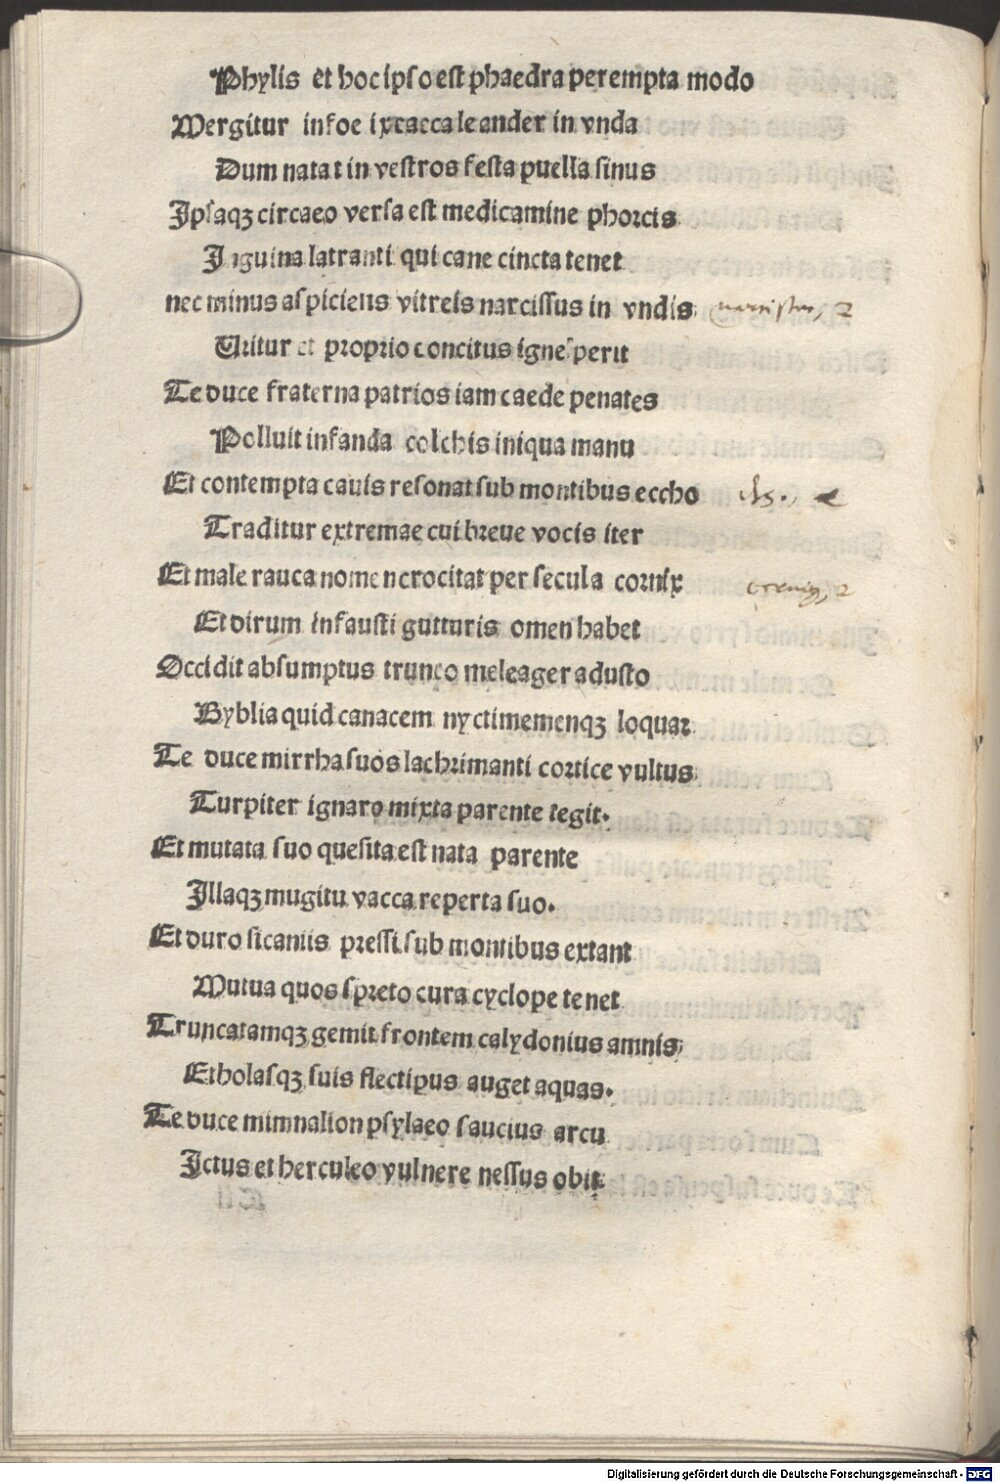 Phylis et hoc ipso est phaedra perempta modo
Mergitur in foe ixtacca leander in vnda
Dum natat in vestros festa puella sinus
Ipsaqꝫ circaeo versa est medicamine phorcis
Inguina latranti qui cane cincta tenet
nec minus aspiciens vitreis narcissus in vndis
Uritur et proprio concitus igne perit
Te duce fraterna patrios iam caede penates
Polluit infanda colchis iniqua manu
Et contempta cauis resonat sub montibus eccho
Traditur extremae cui breue vocis iter
Et male rauca nomen crocitat per secula cornix
Et dirum infausti gutturis omen habet
Occidit absumptus trunco meleager adusto
Byblia quid canacem nyctimemenqꝫ loquar
Te duce mirrha suos lachrimanti cortice vultus
Turpiter ignaro mixta parente tegit.
Et mutata suo quesita est nata parente
Illaqꝫ mugitu vacca reperta suo.
Et duro sicaniis pressi sub montibus extant
Mutua quos spreto cura cyclope tenet
Truncatamqꝫ gemit frontem calydonius amnis
Etholasqꝫ suis flectipus auget aquas.
Te duce mimnalion psylaeo saucius arcu
Ictus et herculeo vulnere nessus obit
Digitalisierung gefördert durch die Deutsche Forschungsgemeinschaft - DFG